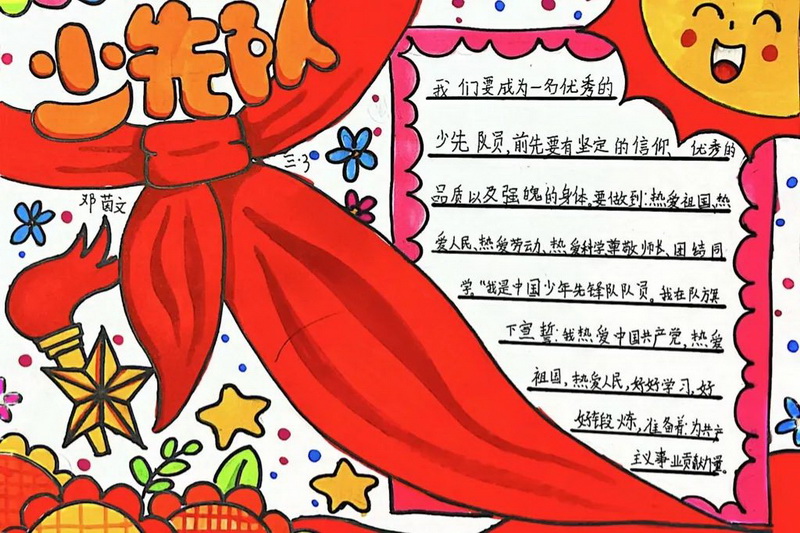 少先队
三.3
邓茵文
我们要成为一名优秀的
少先队员,前先要有坚定的信仰、优秀的
品质以及强魄的身体。要做到:热爱祖国,热
爱人民、热爱劳动、热爱科学尊敬师长、团结同
学。“我是中国少年先锋队队员。我在队旗
下宣誓:我热爱中国共产党,热爱
祖国,热爱人民,好好学习,好
好锻炼,准备着:为共产
主义事业贡献力量。